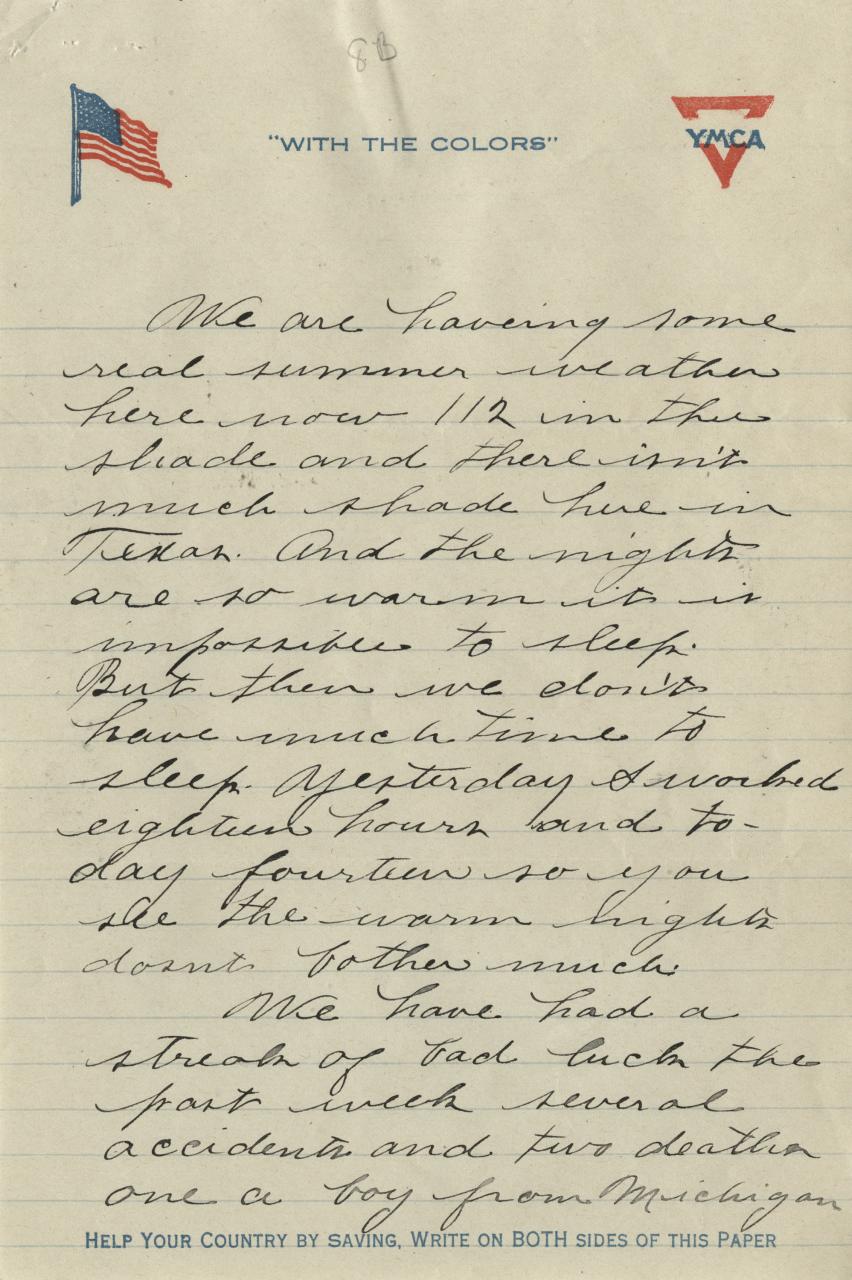 8B
"WITH THE COLORS"
YMCA
We are haveing some
real summer weather
here now 112 in the
shade and there isn't
much shade here in
Texas. And the nights
are so warm it is
impossible to sleep.
But then we don't
have much time to
sleep. Yesterday I worked
eighteen hours and to-
day fourteen so you
see the warm nights
dosnt bother much.
We have had a
streak of bad luck the
past week several
accidents and two deaths
one a boy from Michigan
HELP YOUR COUNTRY BY SAVING, WRITE ON BOTH SIDES OF THIS PAPER